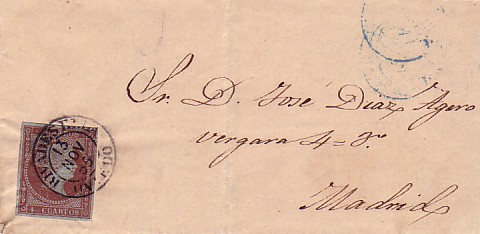 Sr. D. José Diaz Agero
vergara 4=3º
Madrid
RIVADESE
13
NOV
OVIEDO
4 CUARTOS